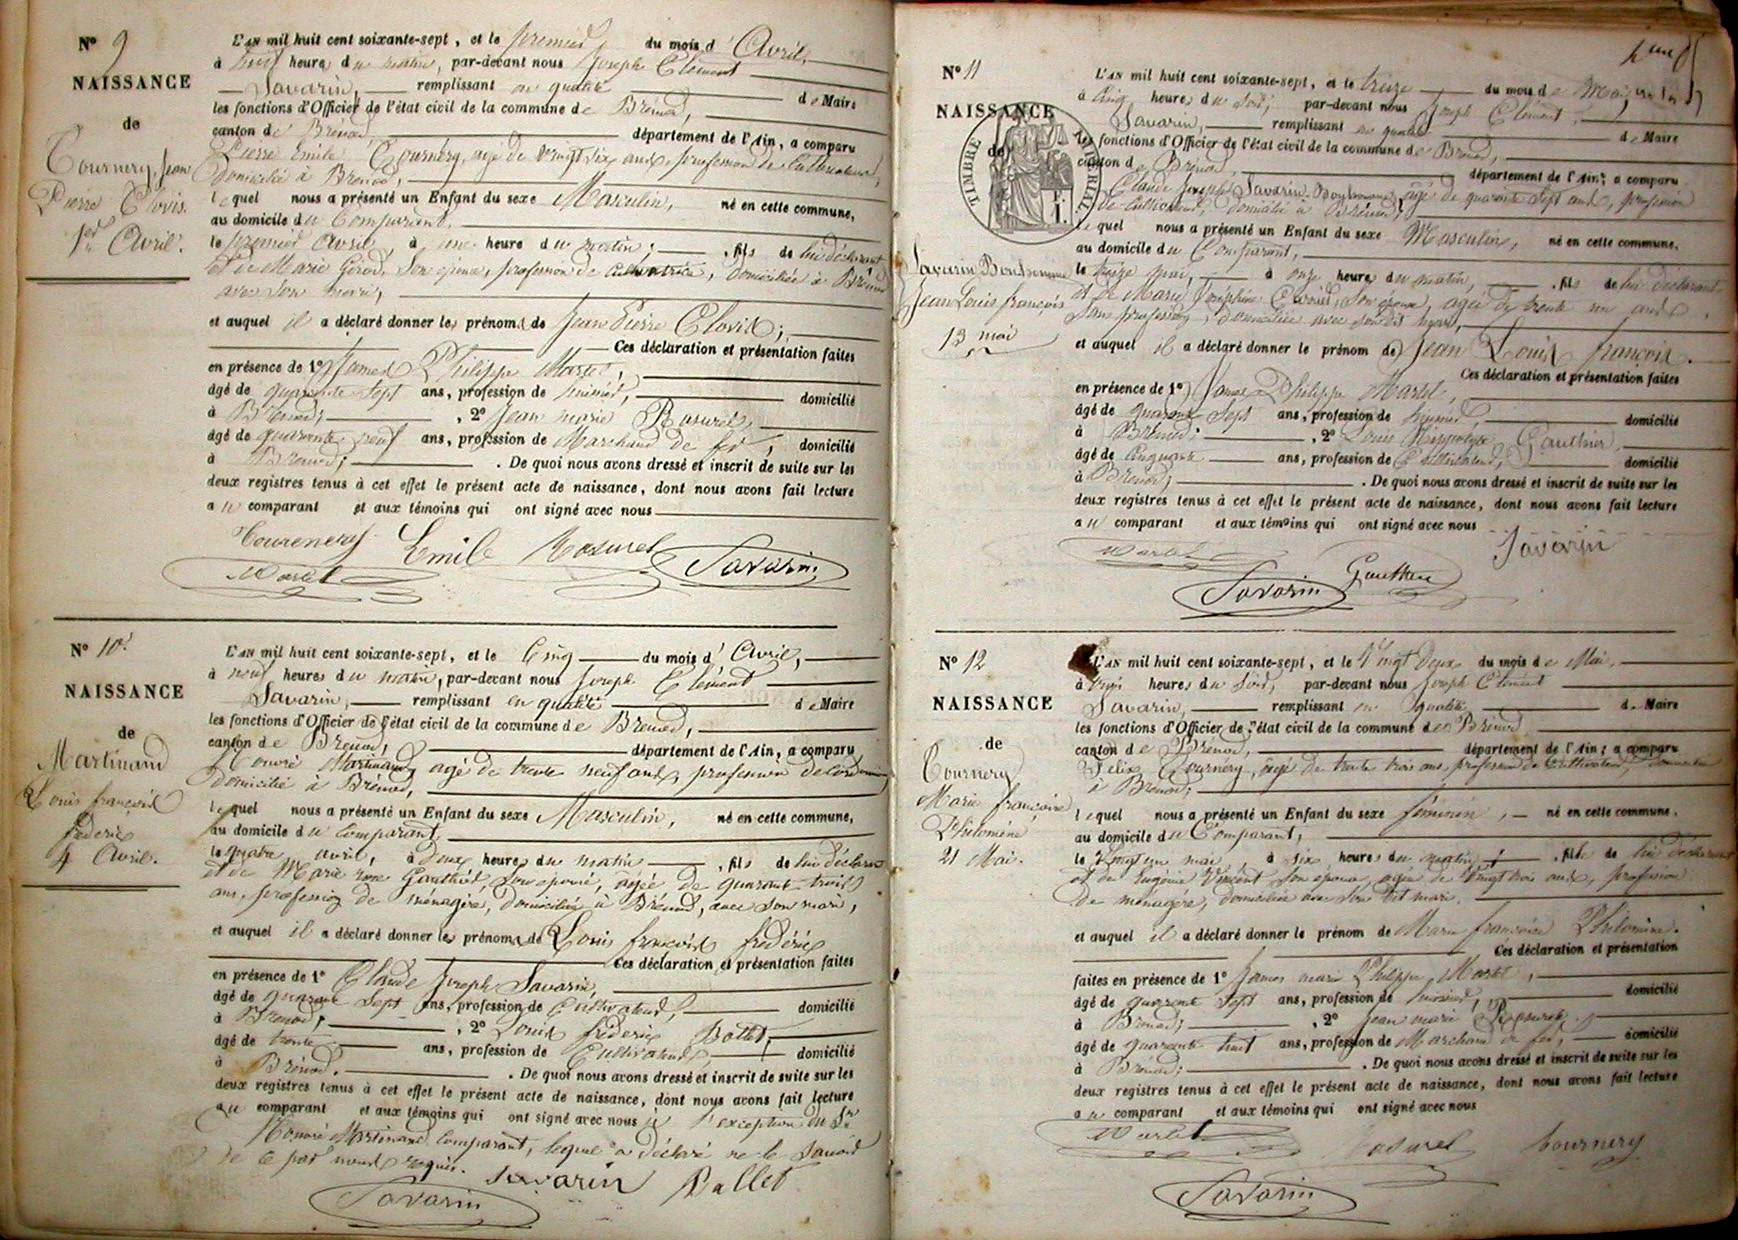 N° 9
NAISSANCE
de
Tournery, Jean
Pierre Clovis.
1er Avril.
L'AN mil huit cent soixante-sept, et le premier du mois d'Avril,
à huit heures du matin, par-devant nous Joseph Clément
Savarin, remplissant en qualité de Maire
les fonctions d'Officier de l'état civil de la commune de Brénod,
canton de Brénod, département de l'Ain, a comparu
Pierre Emile Tournery, agé de vingt six ans, profession de Cultivateur,
domicilié à Brénod,
lequel nous a présenté un Enfant du sexe Masculin, né en cette commune,
au domicile du Comparant,
le premier Avril, à une heure du matin, fils de lui déclarant
et de Marie Girod, son épouse, profession de cultivatrice, domiciliée à Brénod
avec son mari,
et auquel il a déclaré donner les prénoms de Jean Pierre Clovis;
Ces déclaration et présentation faites
en présence de 1° James Philippe Martel,
âgé de quarante sept ans, profession de huissier, domicilié
à Brénod; , 2° Jean marie Rasurel,
âgé de quarante neuf ans, profession de Marchand de fer, domicilié
à Brénod; . De quoi nous avons dressé et inscrit de suite sur les
deux registres tenus à cet effet le présent acte de naissance, dont nous avons fait lecture
au comparant et aux témoins qui ont signé avec nous
Tourenery Emile Rasurel Savarin
Martel
N° 10.
NAISSANCE
de
Martinand
Louis françois
frédéric
4 Avril.
L'AN mil huit cent soixante-sept, et le Cinq du mois d'Avril,
à neuf heures du matin, par-devant nous Joseph Clément
Savarin, remplissant en qualité de Maire
les fonctions d'Officier de l'état civil de la commune de Brénod,
canton de Brénod, département de l'Ain, a comparu
Honoré Martinand, agé de trente neuf ans, profession de Cordonnier
domicilié à Brénod,
lequel nous a présenté un Enfant du sexe Masculin, né en cette commune,
au domicile du comparant,
le quatre avril, à deux heures du matin, fils de lui déclarant
et de Marie rose Gauthier son épouse, agée de quarante trois
ans, profession de ménagère, domiciliée à Brénod, avec son mari,
et auquel il a déclaré donner les prénoms de Louis françois frédéric
Ces déclaration et présentation faites
en présence de 1° Claude Joseph Savarin,
âgé de quarante sept ans, profession de Cultivateur, domicilié
à Brénod, , 2° Louis frédéric Ballet,
âgé de trente ans, profession de Cultivateur, domicilié
à Brénod. . De quoi nous avons dressé et inscrit de suite sur les
deux registres tenus à cet effet le présent acte de naissance, dont nous avons fait lecture
au comparant et aux témoins qui ont signé avec nous à l'exception du Sr
Honoré Martinand comparant, lequel a déclaré ne le savoir
de ce par nous requis. Savarin Ballet
Savarin
N° 11
NAISSANCE
de
TIMBRE IMPÉRIAL
Savarin Bonhomme
Jean Louis françois
13 mai
L'AN mil huit cent soixante-sept, et le treize du mois de Mai,
à Cinq heures du soir, par-devant nous Joseph Clément
Savarin, remplissant en qualité de Maire
les fonctions d'Officier de l'état civil de la commune de Brénod,
canton de Brénod, département de l'Ain, a comparu
Claude Joseph Savarin Bonhomme agé de quarante sept ans, profession
de Cultivateur, domicilié à Brénod,
lequel nous a présenté un Enfant du sexe Masculin, né en cette commune.
au domicile du Comparant,
le treize mai, à onze heures du matin, fils de lui déclarant
et de Marie Joséphine son épouse, agée de trente un ans
sans profession, domiciliée avec son dit mari,
et auquel il a déclaré donner le prénom de Jean Louis françois.
Ces déclaration et présentation faites
en présence de 1° James Philippe Martel,
âgé de quarante Sept ans, profession de huissier, domicilié
à Brénod; , 2° Louis Hippolyte Gauthier,
âgé de cinquante ans, profession de Cultivateur, domicilié
à Brénod; . De quoi nous avons dressé et inscrit de suite sur les
deux registres tenus à cet effet le présent acte de naissance, dont nous avons fait lecture
au comparant et aux témoins qui ont signé avec nous
Savarin
Martel
Savarin Gauthier
N° 12
NAISSANCE
de
Tournery
Marie françoise
Philomène
21 Mai.
L'AN mil huit cent soixante-sept, et le Vingt Deux du mois de Mai,
à trois heures du soir, par-devant nous Joseph Clément
Savarin, remplissant en qualité de Maire
les fonctions d'Officier de l'état civil de la commune de Brénod
canton de Brénod, département de l'Ain, a comparu
Félix Tournery, agé de trente trois ans, profession de Cultivateur, domicilié
à Brénod;
lequel nous a présenté un Enfant du sexe féminin, né en cette commune.
au domicile du Comparant,
le Vingt un mai, à six heures du matin, fille de lui déclarant
et de Eugénie Vincent son épouse, agée de Vingt trois ans, profession
de ménagère, domiciliée avec son dit mari.
et auquel il a déclaré donner le prénom de Marie françoise Philomène.
Ces déclaration et présentation
faites en présence de 1° James marie Philippe Martel,
âgé de quarante sept ans, profession de huissier, domicilié
à Brénod; , 2° Jean marie Rasurel,
âgé de quarante huit ans, profession de Marchand de fer, domicilié
à Brénod; . De quoi nous avons dressé et inscrit de suite sur les
deux registres tenus à cet effet le présent acte de naissance, dont nous avons fait lecture
au comparant et aux témoins qui ont signé avec nous
Martel Rasurel tournery
Savarin